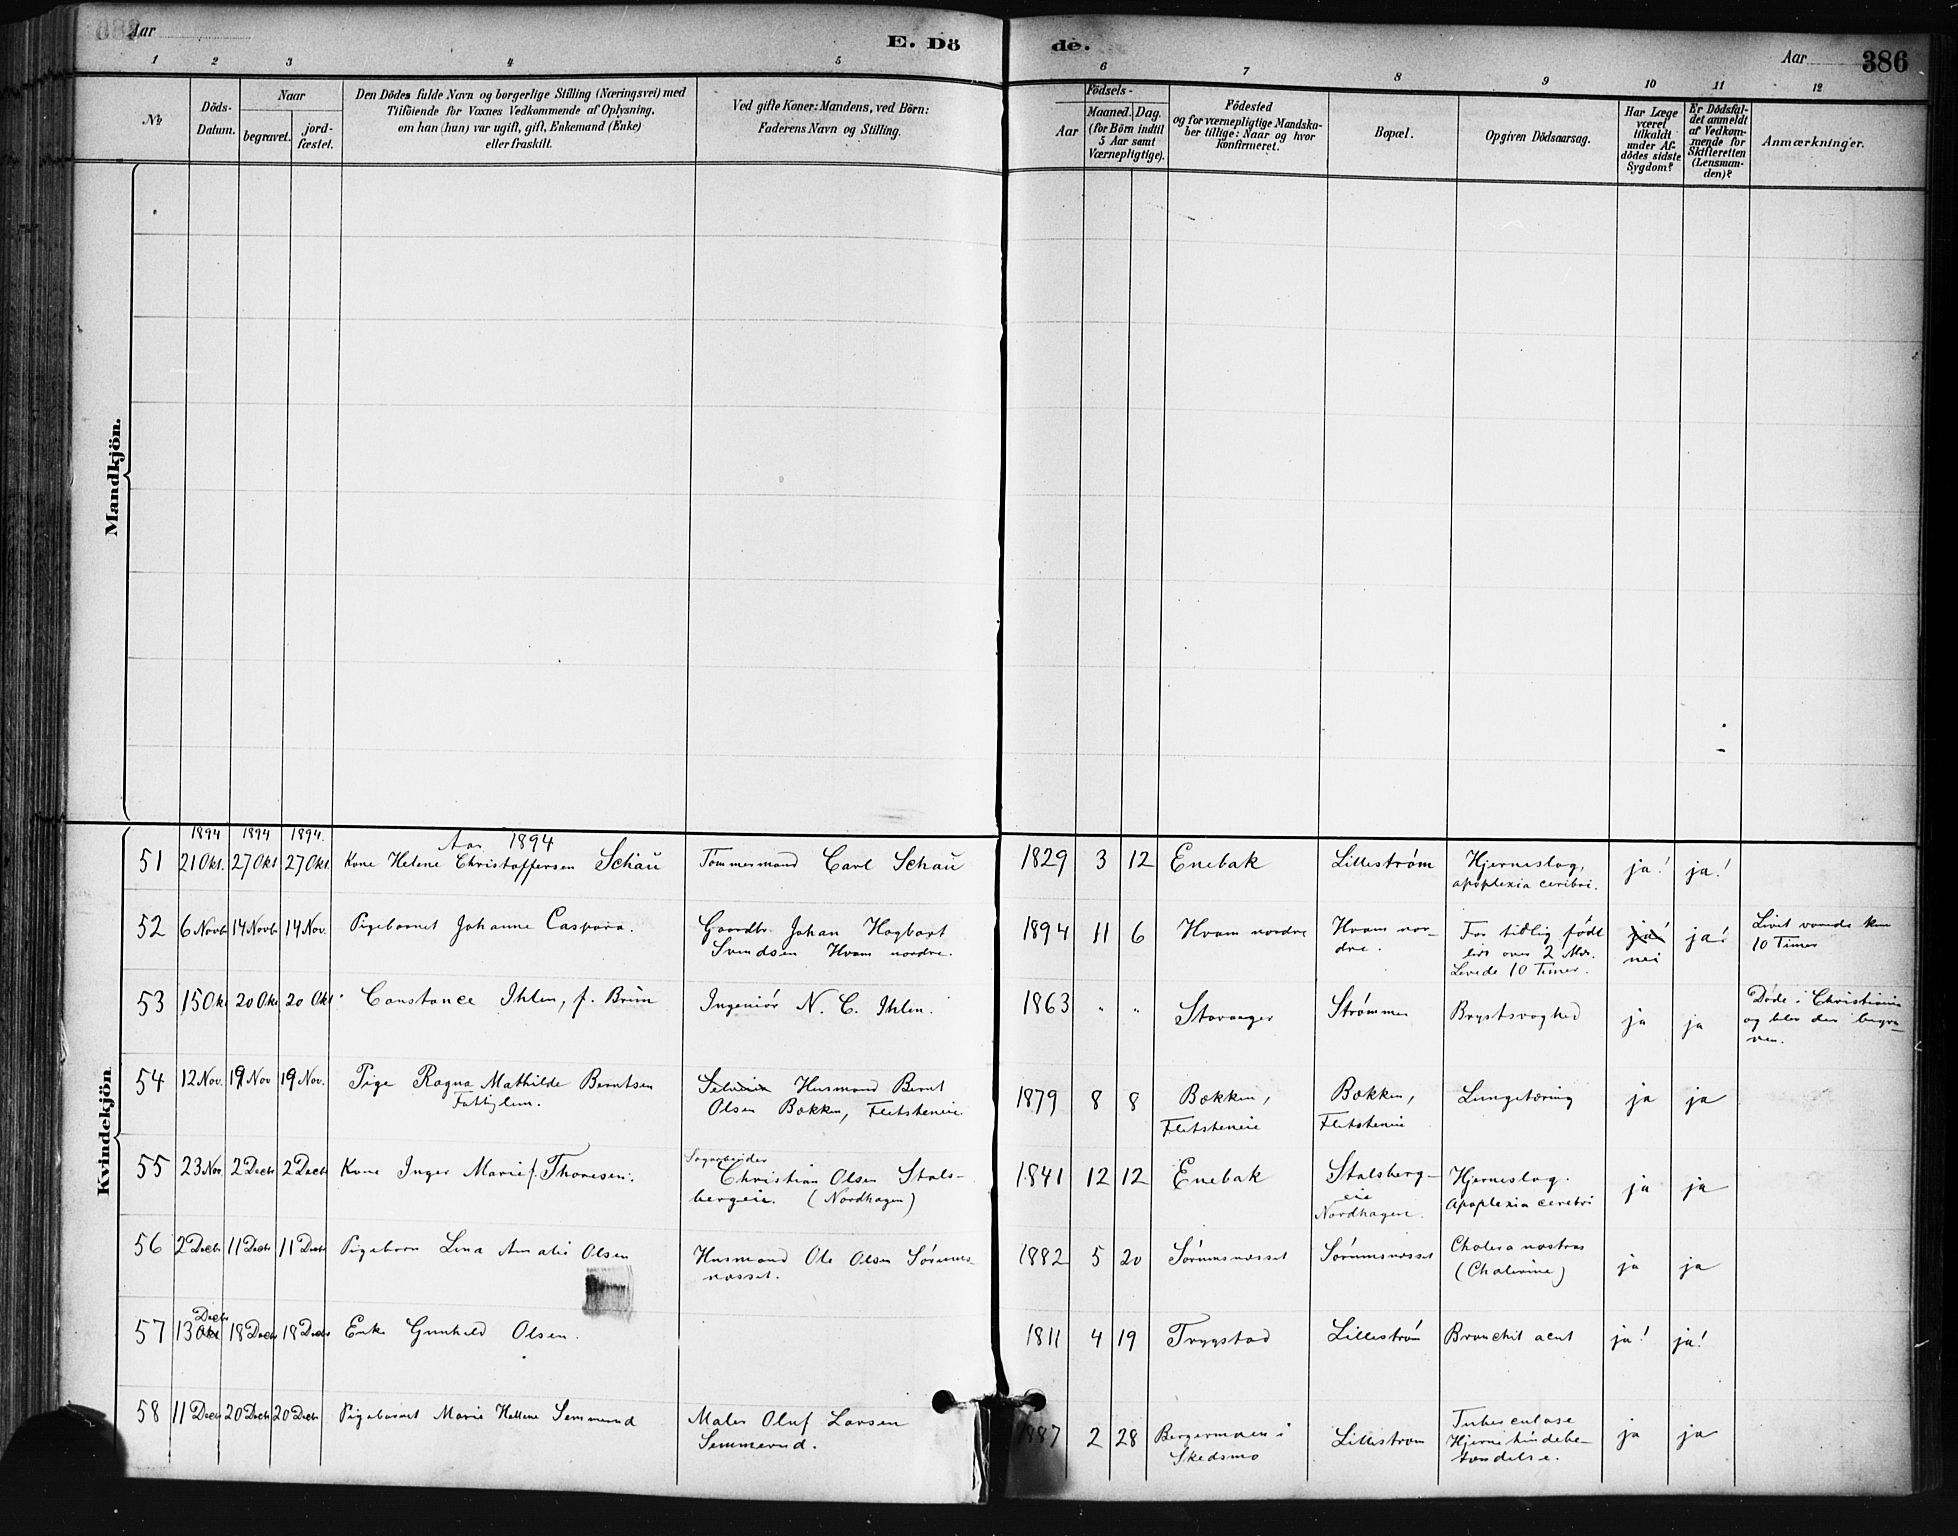 Aar
E. Dö
de.
Aar
386
1 2 3 4 5 6 7 8 9 10 11 12
№
Döds-
Datum.
Naar
begravet.
jord-
fæstet.
Den Dödes fulde Navn og borgerlige Stilling (Næringsvei) med
Tilföiende for Voxnes Vedkommende af Oplysning,
om han (hun) var ugift, gift, Enkemand (Enke)
eller fraskilt.
Ved gifte Koner: Mandens, ved Börn:
Faderens Navn og Stilling.
Födsels-
Aar
Maaned. Dag.
(for Börn indtil
5 Aar samt
Værnepligtige).
Födested
og for værnepligtige Mandska-
ber tillige: Naar og hvor
konfirmeret.
Bopæl.
Opgiven Dödsaarsag.
Har Læge
været
tilkaldt
under Af-
dödes sidste
Sygdom?
Er Dödsfal-
det anmeldt
af Vedkom-
mende for
Skifteretten
(Lensman-
den)?
Anmærkninger.
Mandkjön.
Kvindekjön.
1894 1894 1894.
Aar 1894
51 21 Okt. 27 Okt 27 Okt. Kone Helene Christoffersen Schäu Tømmermand Carl Schau 1829 3 12 Enebak Lillestrøm Hjerneslag, ja! ja!
apoplexia ceribri.
52 6 Novb 14 Novb 14 Nov. Pigebarnet Johanne Caspara. Gaardbr. Johan Hagbart 1894 11 6 Hvam nordre Hvam nor- For tidlig født ja! ja! Livet varede kun
Svendsen Hvam nordre. dre. over 2 Mdr. nei 10 Timer
Levede 10 Timer.
53 15 Okt 20 Okt 20 Okt Constance Ihlen, f. Brun Ingeniør N. C. Ihlen. 1863 " " Stavanger Strømmen Brystsvaghed ja ja Døde i Christiania
og blev der begra-
ven.
54 12 Nov. 19 Nov 19 Nov. Pige Ragna Mathilde Berntsen Husmand Bernt 1879 8 8 Bakken, Bakken, Lungetæring ja ja
Fattiglem. Olsen Bakken, Flatsteneie Flatsteneie Flatsteneie
55 23 Nov. 2 Decb 2 Decb Kone Inger Marie f. Thoresen. Sagarbeider 1841 12 12 Enebak Stalsberg- Hjerneslag. ja ja
Christian Olsen Stals- eie Apoplexia cerebri
bergeie. (Nordhagen) Nordhagen.
56 2 Decb 11 Decb 11 Decb Pigebarn Lina Amalie Olsen Husmand Ole Olsen Sørums- 1882 5 20 Sørumsnæsset Sørumsnæsset Cholera nostras ja ja
næsset. (Cholerine)
Decb
57 13 Okt 18 Decb 18 Decb Enke Gunhild Olsen. 1811 4 19 Trygstad Lillestrøm Bronchit acut ja! ja!
58 11 Decb 20 Decb 20 Decb Pigebarnet Marie Hellene Semmerud Maler Oluf Larsen 1887 2 28 Bergermoen i Lillestrøm Tuberculøse ja ja
Semmerud. Skedsmo Hjernehindebe-
tændelse.